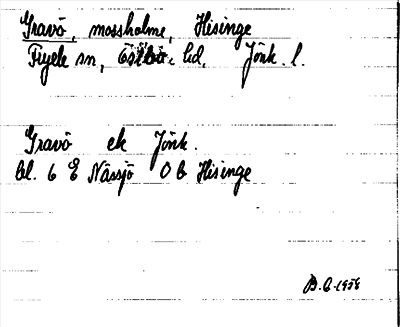 Gravö, mossholme, Hisinge
Fryele sn, Östbo hd, Jönk. l.
Gravö ek Jönk.
bl. 6 E Nässjö O b Hisinge